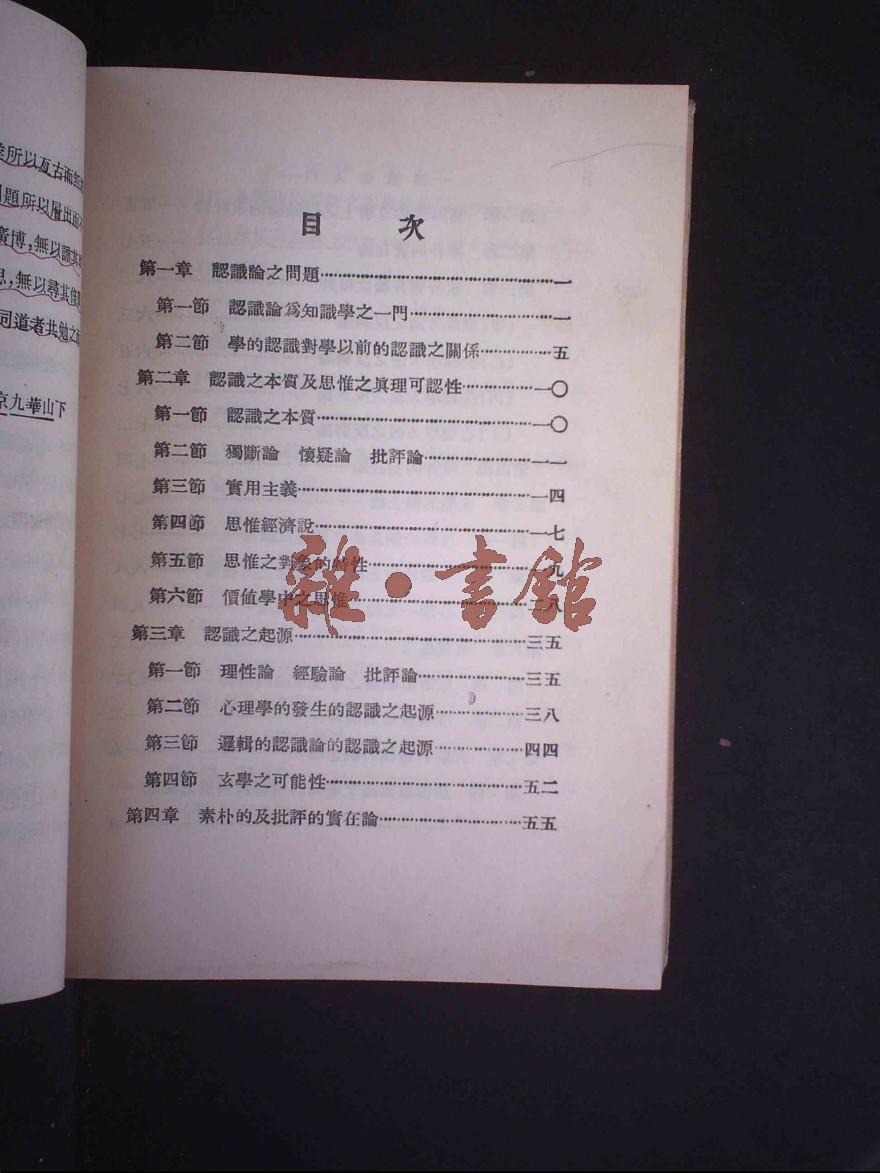 業所以亙古而
題所以層出而
廣博,無以識其
思,無以尋其
同道者共勉之
京九華山下
目 次
第一章 認識論之問題……一
第一節 認識論爲知識學之一門……一
第二節 學的認識對學以前的認識之關係……五
第二章 認識之本質及思惟之眞理可認性……一〇
第一節 認識之本質……一〇
第二節 獨斷論 懷疑論 批評論……一一
第三節 實用主義……一四
第四節 思惟經濟說……一七
第五節 思惟之對象的特性……一九
第六節 價值學中之思惟……二八
第三章 認識之起源……三五
第一節 理性論 經驗論 批評論……三五
第二節 心理學的發生的認識之起源……三八
第三節 邏輯的認識論的認識之起源……四四
第四節 玄學之可能性……五二
第四章 素朴的及批評的實在論……五五
雜·書館